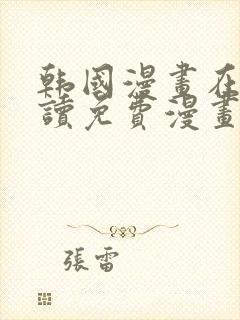 韩國漫畫在
讀免費漫畫
張雷